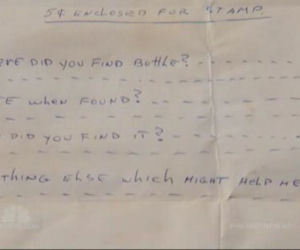 5¢ ENCLOSED FOR STAMP.
ERE DID YOU FIND BOTTLE?
TE WHEN FOUND?
DID YOU FIND IT?
THING ELSE WHICH MIGHT HELP ME